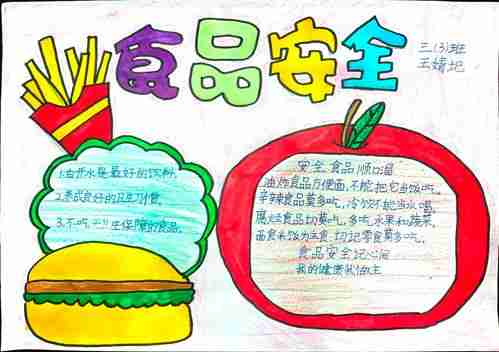 食品安全
三(3)班
王婧圮
1.白开水是最好的饮料,
2.养成良好的卫生习惯,
3.不吃 卫生保障的食品。
安全食品顺口溜
油炸食品方便面,不能把它当饭吃,
辛辣食品莫多吃,冷饮不能当水喝,
腐烂食品切莫吃,多吃水果和蔬菜,
面食米饭为主食,切记零食莫多吃,
食品安全记心间
我的健康我做主